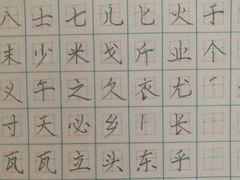 八士七儿匕火于
末少米戈斤业个
义午之久衣尤
寸天必乡长
瓦瓦立头东乎